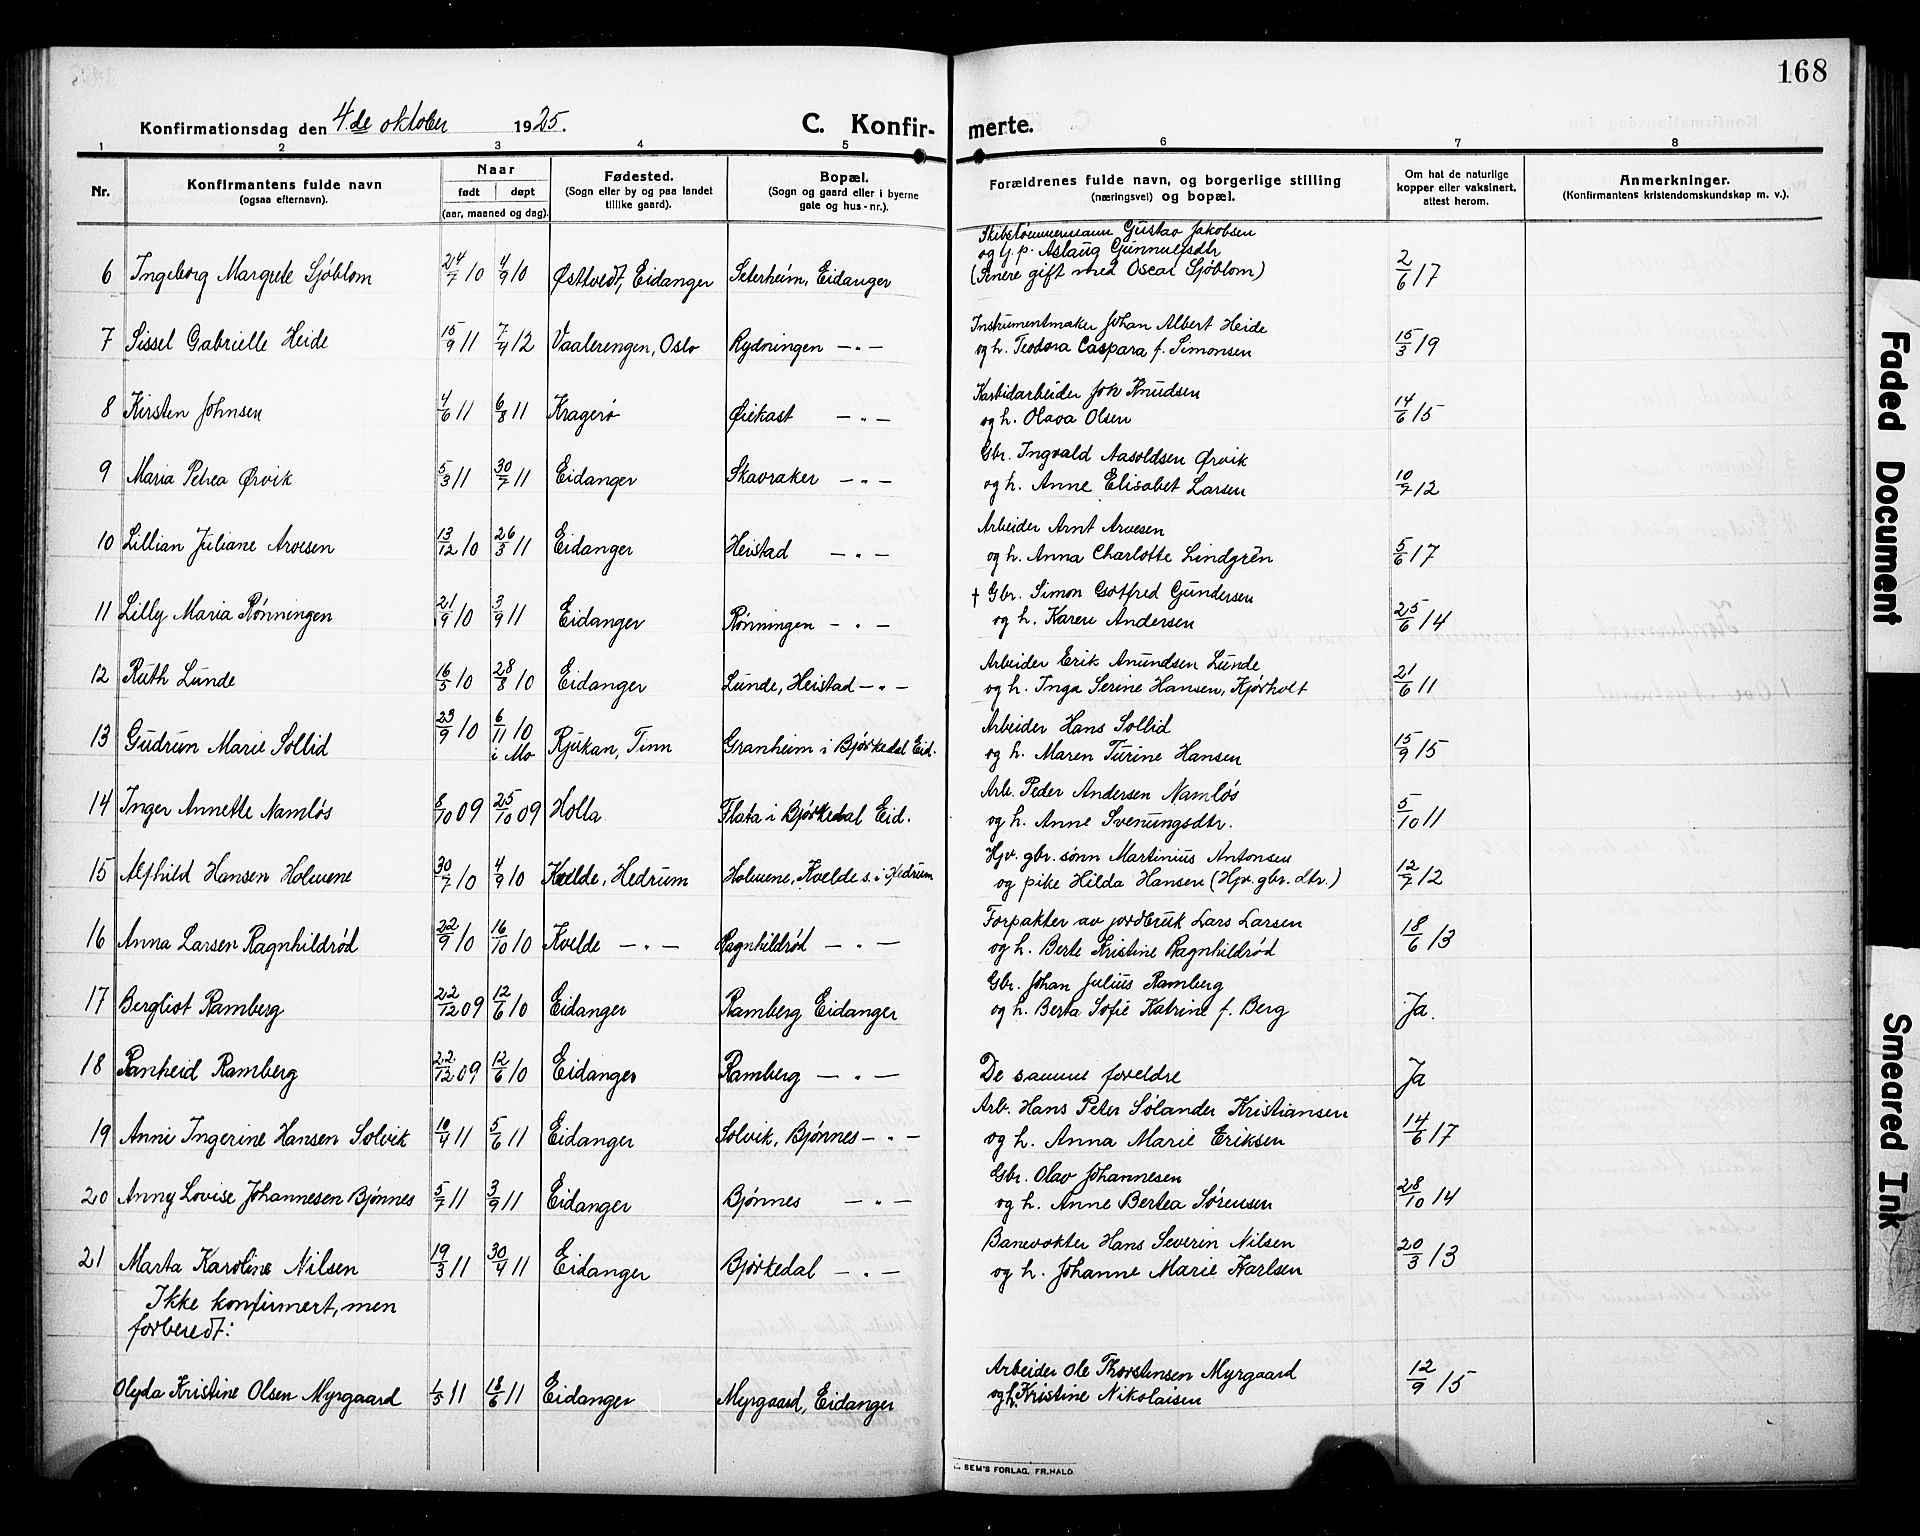 168
Konfirmationsdag den 4.de oktober 1925.
C. Konfir-merte.
1 2 3 4 5 6 7 8
Nr.
Konfirmantens fulde navn
(ogsaa efternavn).
Naar
født døpt
(aar, maaned og dag).
Fødested.
(Sogn eller by og paa landet
tillike gaard).
Bopæl.
(Sogn og gaard eller i byerne
gate og hus-nr.).
Forældrenes fulde navn, og borgerlige stilling
(næringsvei) og bopæl.
Om hat de naturlige
kopper eller vaksinert,
attest herom.
Anmerkninger.
(Konfirmantens kristendomskundskap m. v.).
Skibstømmermann Gustav Jakobsen
og g. p. Aslaug Gunnulfsdtr
6 Ingeborg Margrete Sjöblom 24/7 10 4/9 10 Østtvedt, Eidanger Seterheim, Eidanger (Senere gift med Oscar Sjöblom) 2/6 17
Instrumentmaker Johan Albert Heide
7 Sissel Gabrielle Heide 15/9 11 7/4 12 Vaalerengen, Oslo Rydningen — " — og h. Teodora Caspara f. Simonsen 15/3 19
Karbidarbeider Joh Knudsen
8 Kirsten Johnsen 4/6 11 6/8 11 Kragerø Øiekast — " — og h. Olava Olsen 14/6 15
Gbr. Ingvald Aasoldsen Ørvik
9 Maria Petrea Ørvik 5/3 11 30/7 11 Eidanger Skavraker — " — og h. Anne Elisabet Larsen 10/7 12
Arbeider Arnt Arvesen
10 Lillian Juliane Arvesen 13/12 10 26/3 11 Eidanger Heistad — " — og h. Anna Charlotte Lindgrén 5/6 17
† Gbr. Simon Gotfred Gundersen
11 Lilly Maria Rønningen 21/9 10 3/9 11 Eidanger Rønningen — " — og h. Karen Andersen 25/6 14
Arbeider Erik Anundsen Lunde
12 Ruth Lunde 16/5 10 28/8 10 Eidanger Lunde, Heistad — " — og h. Inga Serine Hansen, Kjørholt 21/6 11
Arbeider Hans Sollid
13 Gudrun Marie Sollid 23/9 10 6/11 10 i Mo Rjukan, Tinn Granheim i Bjørkedal Eid. og h. Maren Turine Hansen 15/9 15
Arb. Peder Andersen Namløs
14 Inger Annette Namløs 8/10 09 25/10 09 Holla Flata i Bjørkedal Eid. og h. Anne Svenungsdtr. 5/10 11
Hjv. gbr. sønn Martinius Antonsen
15 Alfhild Hansen Holmene 30/7 10 4/9 10 Kvelde, Hedrum Holmene, Kvelde s. i Hedrum og pike Hilda Hansen (Hjv. gbr. dtr.) 12/7 12
Forpakter av jordbruk Lars Larsen
16 Anna Larsen Ragnhildrød 22/9 10 16/10 10 Kvelde — " — Ragnhildrød — " — og h. Berte Kristine Ragnhildrød 18/6 13
Gbr. Johan Julius Ramberg
17 Bergliot Ramberg 22/12 09 12/6 10 Eidanger Ramberg Eidanger og h. Berta Sofie Katrine f. Berg Ja.
18 Ranheid Ramberg 22/12 09 12/6 10 Eidanger Ramberg — " — De samme foreldre Ja
Arb. Hans Peter Sølander Kristiansen
19 Anni Ingerine Hansen Solvik 10/4 11 5/6 11 Eidanger Solvik, Bjønnes — " — og h. Anna Marie Eriksen 14/6 17
Gbr. Olav Johannesen
20 Anny Lovise Johannesen Bjønnes 5/7 11 3/9 11 Eidanger Bjønnes — " — og h. Anne Bertea Sørensen 28/10 14
Banevokter Hans Severin Nilsen
21 Marta Karoline Nilsen 19/3 11 30/4 11 Eidanger Bjørkedal — " — og h. Johanne Marie Karlsen 20/3 13
Ikke konfirmert, men
forberedt:
Arbeider Ole Thorstensen Myrgaard
Olyda Kristine Olsen Myrgaard 1/5 11 18/6 11 Eidanger Myrgaard, Eidanger og h. Kristine Nikolaisen 12/9 15
SEM'S FORLAG, FR.HALD.
Faded Document
Smeared Ink